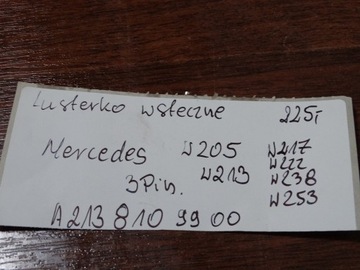 Lusterko wsteczne 225,-
Mercedes W205 W217
W222
3Pin. W213 W238
W253
A213 810 99 00